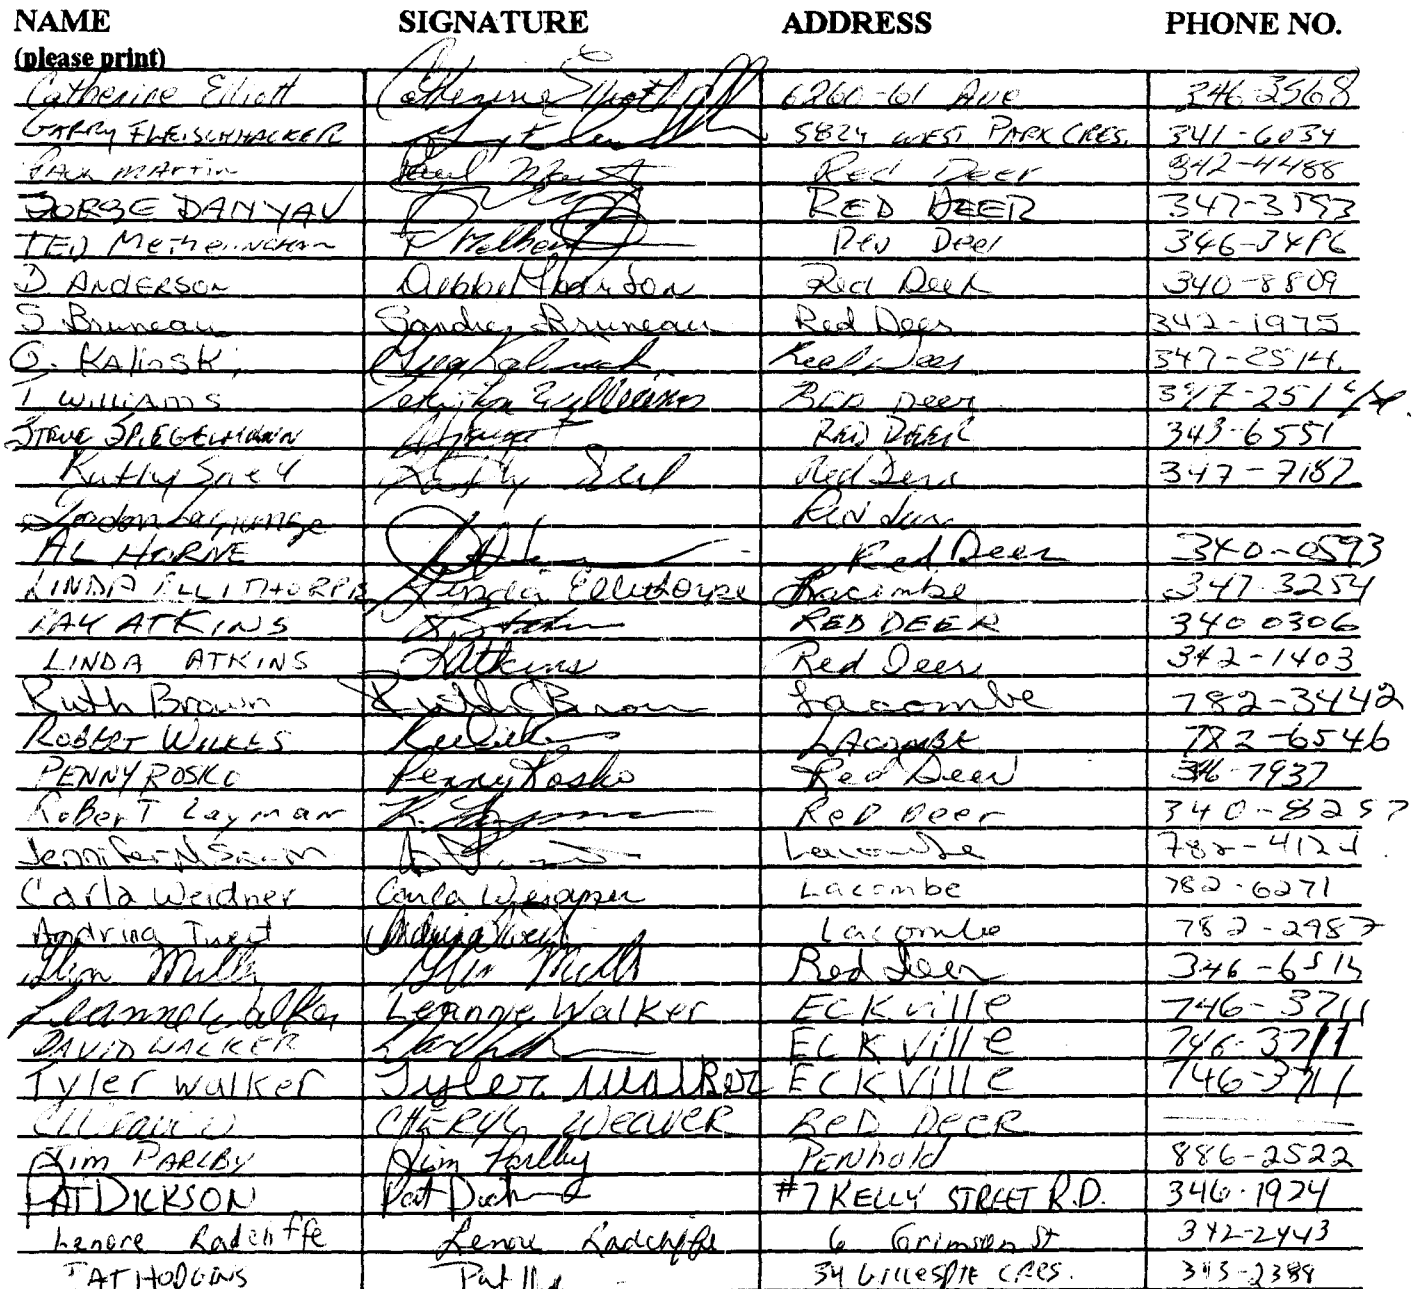 NAME SIGNATURE ADDRESS PHONE NO.
(please print)
Catherine Elliott Catherine Elliott 6260-61 Ave 346-3568
GARRY FLEISCHHACKER 5824 WEST PARK CRES. 341-6034
Paul Martin Paul Red Deer 342-4488
JORGE DANYAU RED DEER 347-3593
TED Metheringham T Red Deer 346-3486
D ANDERSON Debbie Red Deer 340-8809
S. Bruneau Sandra Bruneau Red Deer 342-1975
G. KAlinski Greg Red Deer 347-2514
T WILLIAMS Williams RED Deer 347-2514
STEVE SPIEGELMANN RED DEER 343-6551
Kathy Kathy Red Deer 347-7187
Gordon Lagrange Red Deer
AL HORNE Red Deer 340-0593
LINDA ELLITHORPE Linda Ellithorpe Lacombe 347-3254
RAY ATKINS RED DEER 340 0306
LINDA ATKINS L Atkins Red Deer 342-1403
Ruth Brown Ruth Brown Lacombe 782-3442
ROBERT WILKES Lacombe 782-6546
PENNY ROSKO Penny Rosko Red Deer 346-7937
RoBerT Layman R. Layman ReD Deer 340-8257
Jennifer Lacombe
Carla Weidner Carla Weidner Lacombe 782-6271
Andrina Tweet Andrina Tweet Lacombe 782-2987
Glen Mills Glen Mills Red Deer
Leanne Walker Leanne Walker ECKville 746-3711
DAVID WALKER ECKVille 746-3711
Tyler walker Tyler Walker ECKVille 746-3711
C Weaver CHERYL WeaveR ReD DeeR
Jim PARLBY Jim Parlby PENhold 886-2522
PAT DICKSON Pat #7 KELLY STREET R.D. 346-1924
Lenore Radcliffe Lenore Radcliffe 6 Grimson St 342-2443
PAT HODGINS Pat 34 GILLESPIE CRES. 343-2388